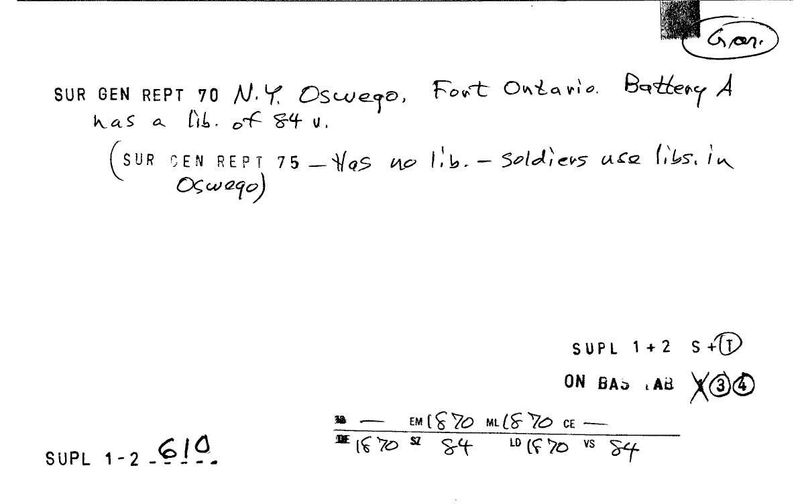 Gar.
SUR GEN REPT 70 N.Y. Oswego, Fort Ontario. Battery A
has a lib. of 84 v.
(SUR GEN REPT 75 — Has no lib. — Soldiers use libs. in
Oswego)
SUPL 1+2 S+T
ON BAS TAB X 3 4
— EM 1870 ML 1870 CE —
DE 1870 SZ 84 LD 1870 VS 84
SUPL 1-2 610